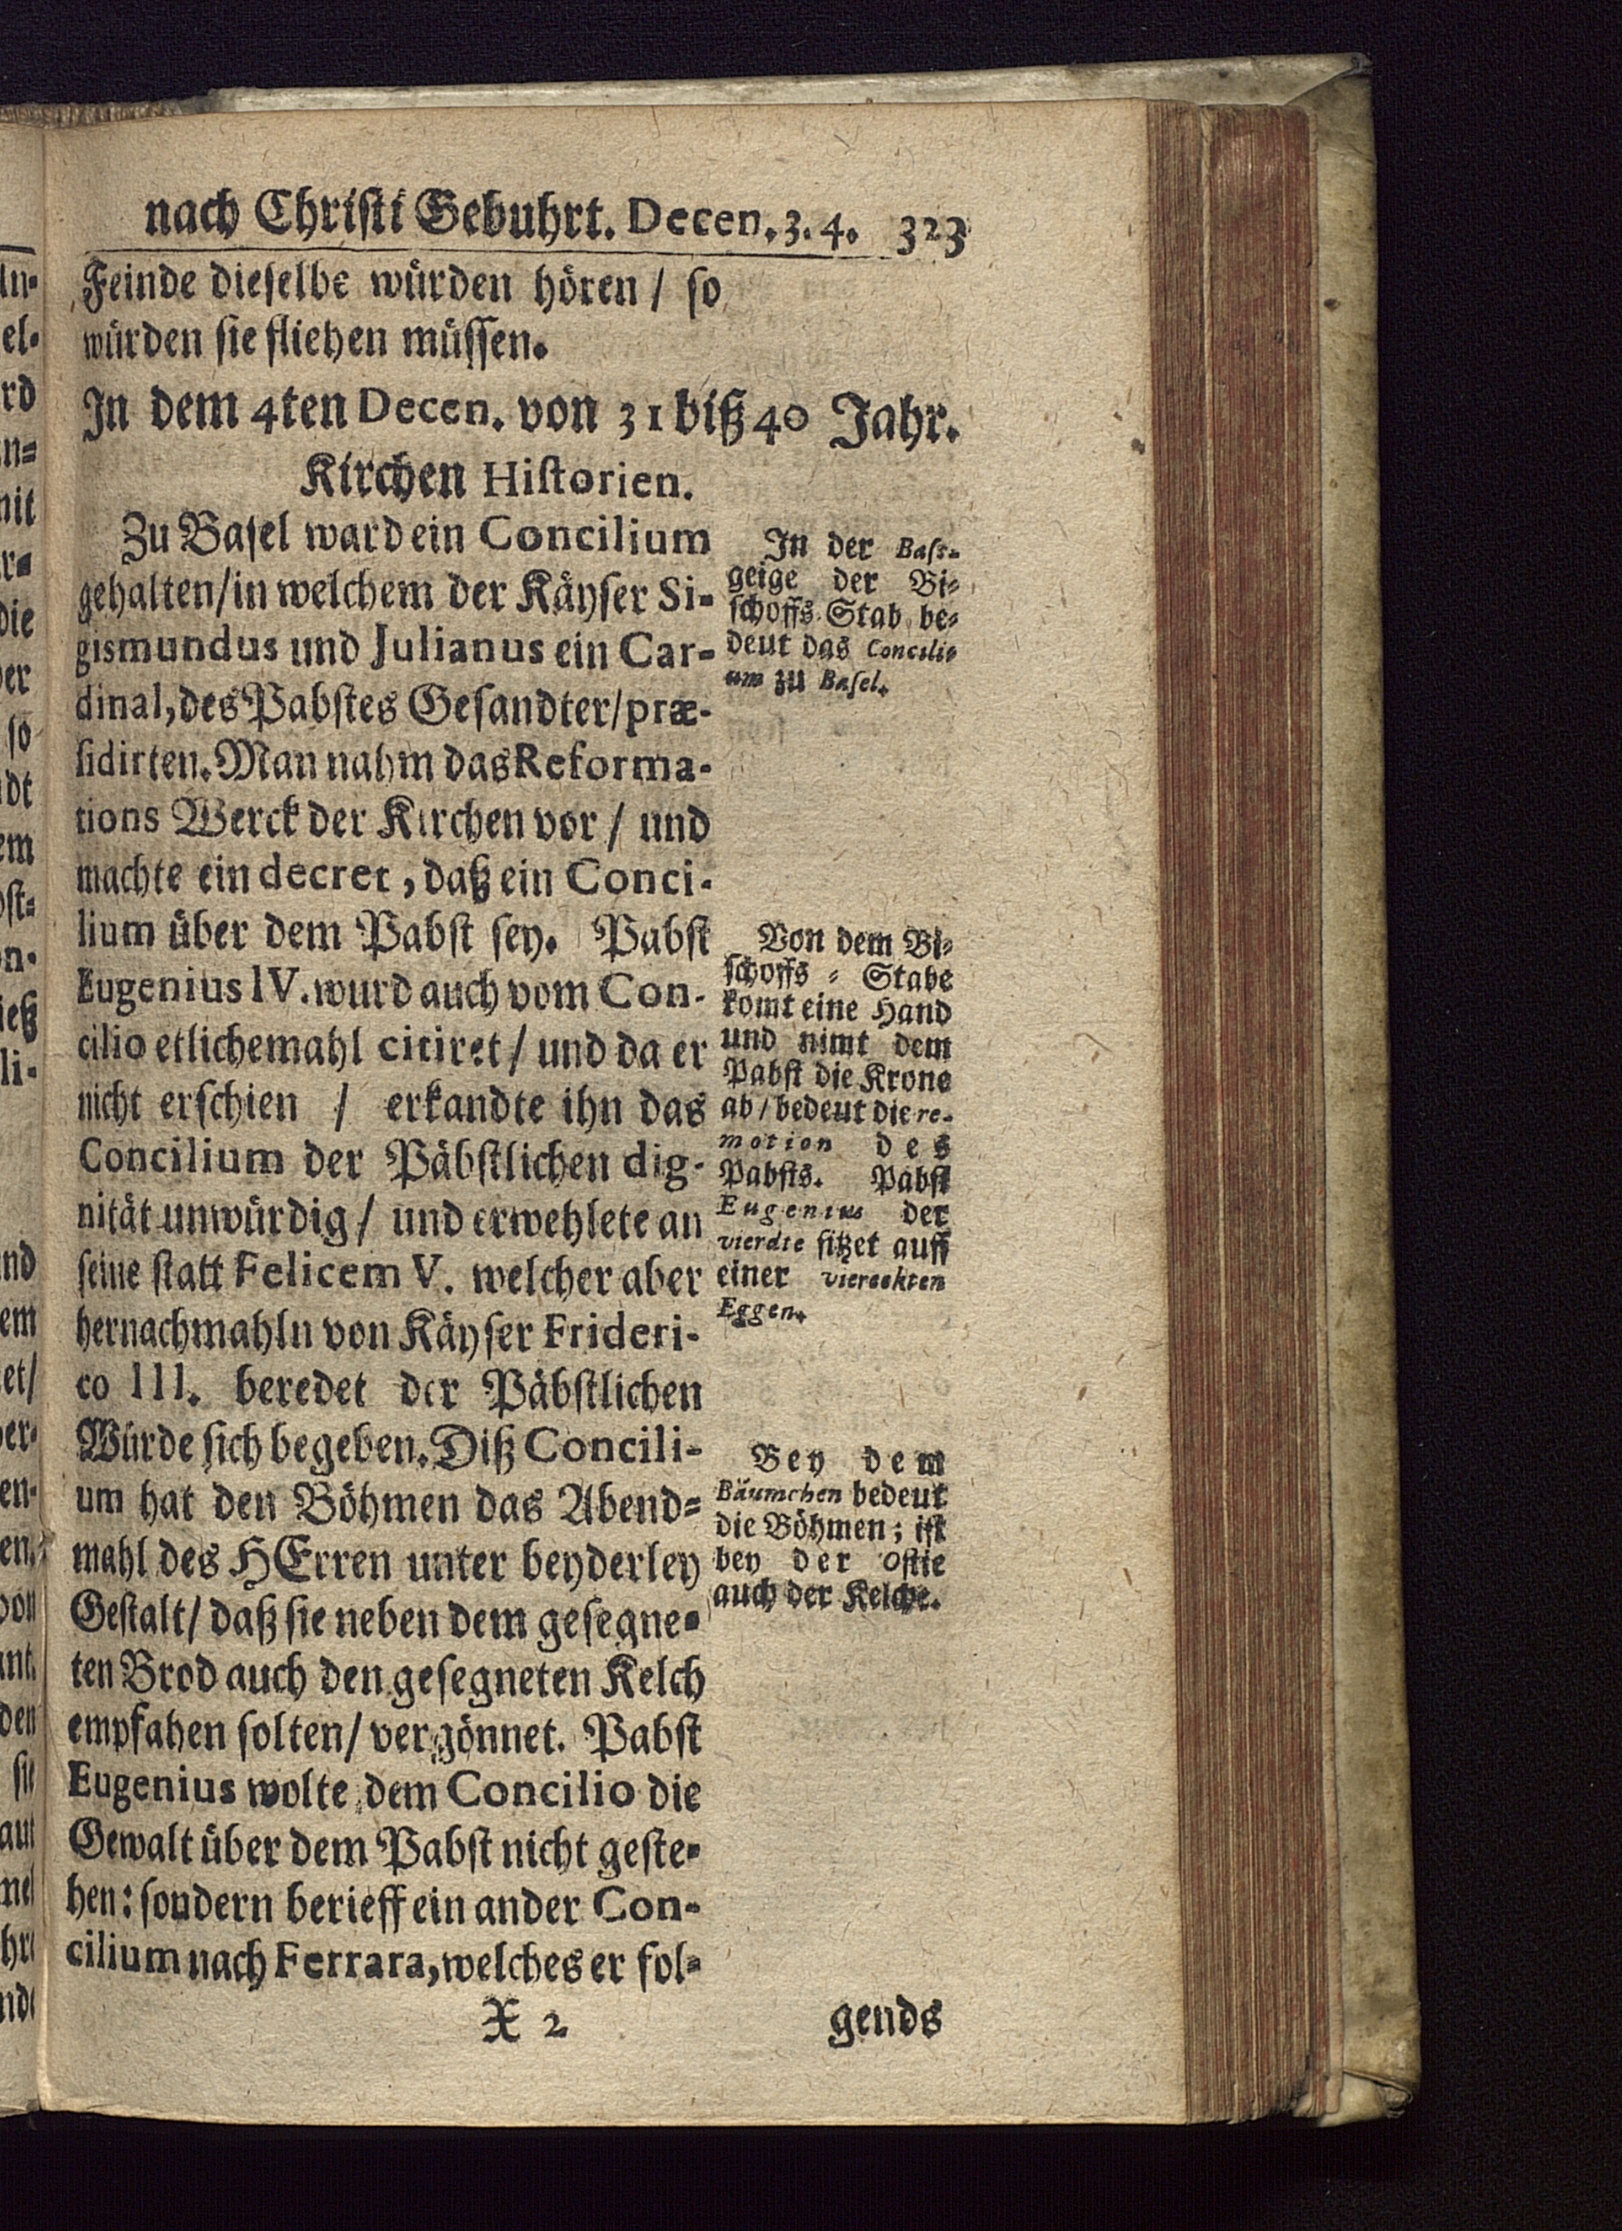 nach Christi Gebuhrt. Decen. 3. 4. 323
Feinde dieselbe würden hören / so
würden sie fliehen müssen.
In dem 4ten Decen. von 31 biß 40 Jahr.
Kirchen Historien.
Zu Basel ward ein Concilium
gehalten / in welchem der Käyser Si-
gismundus und Julianus ein Car-
dinal, des Pabstes Gesandter / præ-
sidirten. Man nahm das Reforma-
tions Werck der Kirchen vor / und
machte ein decret, daß ein Conci-
lium über dem Pabst sey. Pabst
Eugenius IV. wurd auch vom Con-
cilio etlichemahl citiret / und da er
nicht erschien / erkandte ihn das
Concilium der Päbstlichen dig-
nität unwürdig / und erwehlete an
seine statt Felicem V. welcher aber
hernachmahln von Käyser Frideri-
co III. beredet der Päbstlichen
Würde sich begeben. Diß Concili-
um hat den Böhmen das Abend-
mahl des HErren unter beyderley
Gestalt / daß sie neben dem gesegne-
ten Brod auch den gesegneten Kelch
empfahen solten / vergönnet. Pabst
Eugenius wolte dem Concilio die
Gewalt über dem Pabst nicht geste-
hen: sondern berieff ein ander Con-
cilium nach Ferrara, welches er fol-
In der Bass-
geige der Bi-
schoffs Stab be-
deut das Concili-
um zu Basel.
Von dem Bi-
schoffs - Stabe
komt eine Hand
und nimt dem
Pabst die Krone
ab / bedeut die re-
motion des
Pabsts. Pabst
Eugenius der
vierdte sitzet auff
einer viereckten
Eggen.
Bey dem
Bäumchen bedeut
die Böhmen; ist
bey der Ostie
auch der Kelche.
X 2 gends